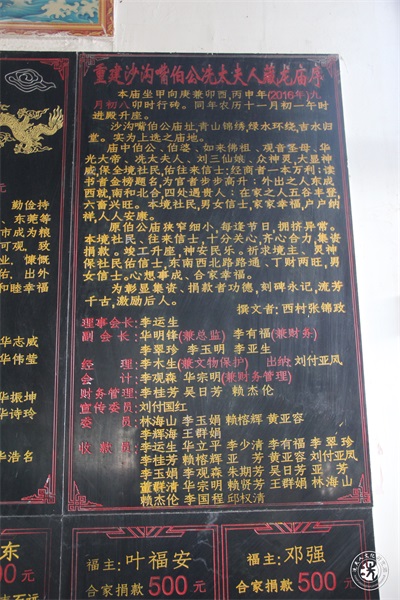 重建沙沟嘴伯公冼太夫人藏龙庙序
本庙坐甲向庚兼卯酉,丙申年(2016年)九
月初八卯时行砖。同年农历十一月初一午时
进殿升座。
沙沟嘴伯公庙址,青山锦绣,绿水环绕,吉水归
堂。实为上选之庙地。
庙中伯公、伯婆、如来佛祖、观音圣母、华
光大帝、冼太夫人、刘三仙娘、众神灵,大显神
威,保全境社民,佑往来信士;经商者一本万利;读
书者金榜题名,为官者步步高升;外出之人东成
西就,南和北合,四处遇贵人;在家之人五谷丰登,
六畜兴旺。本境社民,男女信士,家家幸福,户户纳
祥,人人安康。
原伯公庙狭窄细小,每逢节日,拥挤异常。
本境社民、往来信士,十分关心,齐心合力,集资
捐款。竣工升座,神安民乐。祈求境主、灵神
保社民佑信士,东南西北路路通、丁财两旺,男
女信士。心想事成、合家幸福。
为彰显集资、捐款者功德,刻碑永记,流芳
千古,激励后人。
撰文者:西村张锦政
理事会长:李运生
副会长:华明锋(兼总监) 李有福(兼财务)
李翠珍 李玉明 李亚生
经理:李木生(兼文物保护) 出纳:刘付亚凤
会计:李观森 华宗明(兼财务管理)
财务管理:李桂芳 吴日芳 赖杰伦
宣传委员:刘付国红
委员:林海山 李玉娟 赖榕辉 黄亚容
李辉海 王群娟
收款员:李运生 李立平 李少清 李有福 李翠珍
李桂芳 赖榕辉 李亚 黄亚容 刘付亚凤
李玉娟 李观森 朱期芳 吴日芳 亚芳
董群清 华宗明 赖贤芳 王群娟 林海山
赖杰伦 李国程 邱权清
勤俭持
、东莞等
市成为粮
可观。致
业,慷慨
佑。出外
和睦幸福
华志威
华伟莹
华振坤
华诗玲
华浩名
东
00元
福主:叶福安
合家捐款500元
福主:邓强
合家捐款500元